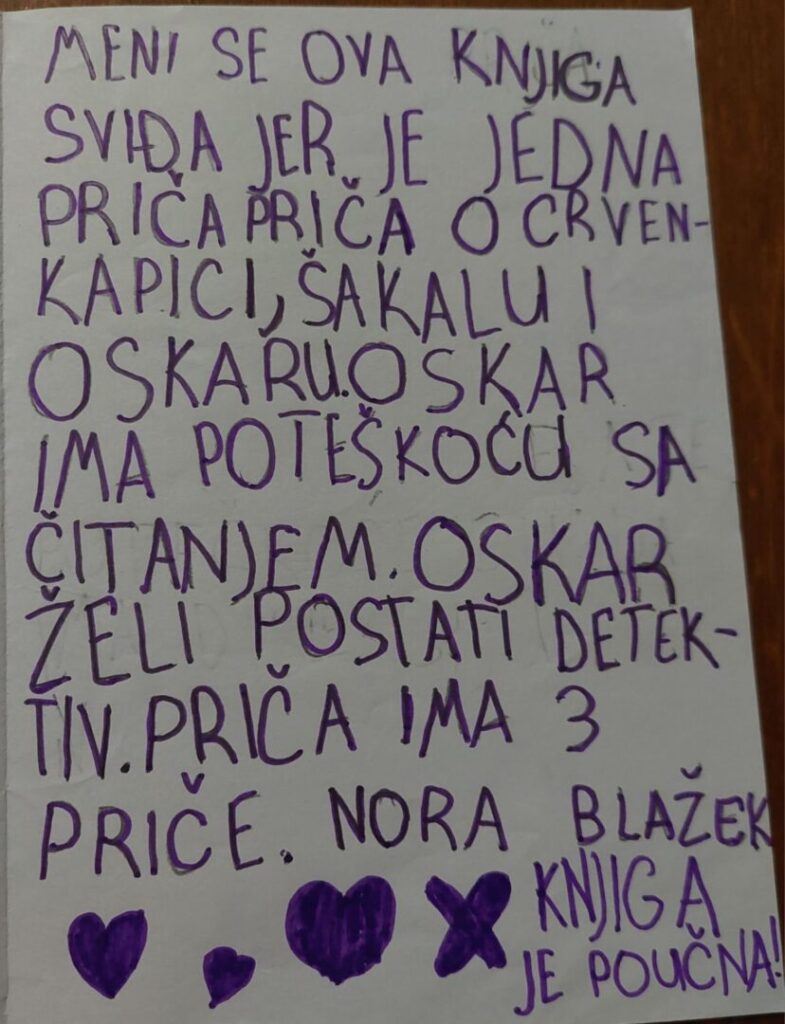 MENI SE OVA KNJIGA
SVIĐA JER JE JEDNA
PRIČA PRIČA O CRVEN-
KAPICI, ŠAKALU I
OSKARU. OSKAR
IMA POTEŠKOĆU SA
ČITANJEM. OSKAR
ŽELI POSTATI DETEK-
TIV. PRIČA IMA 3
PRIČE. NORA BLAŽEK
KNJIGA
JE POUČNA!